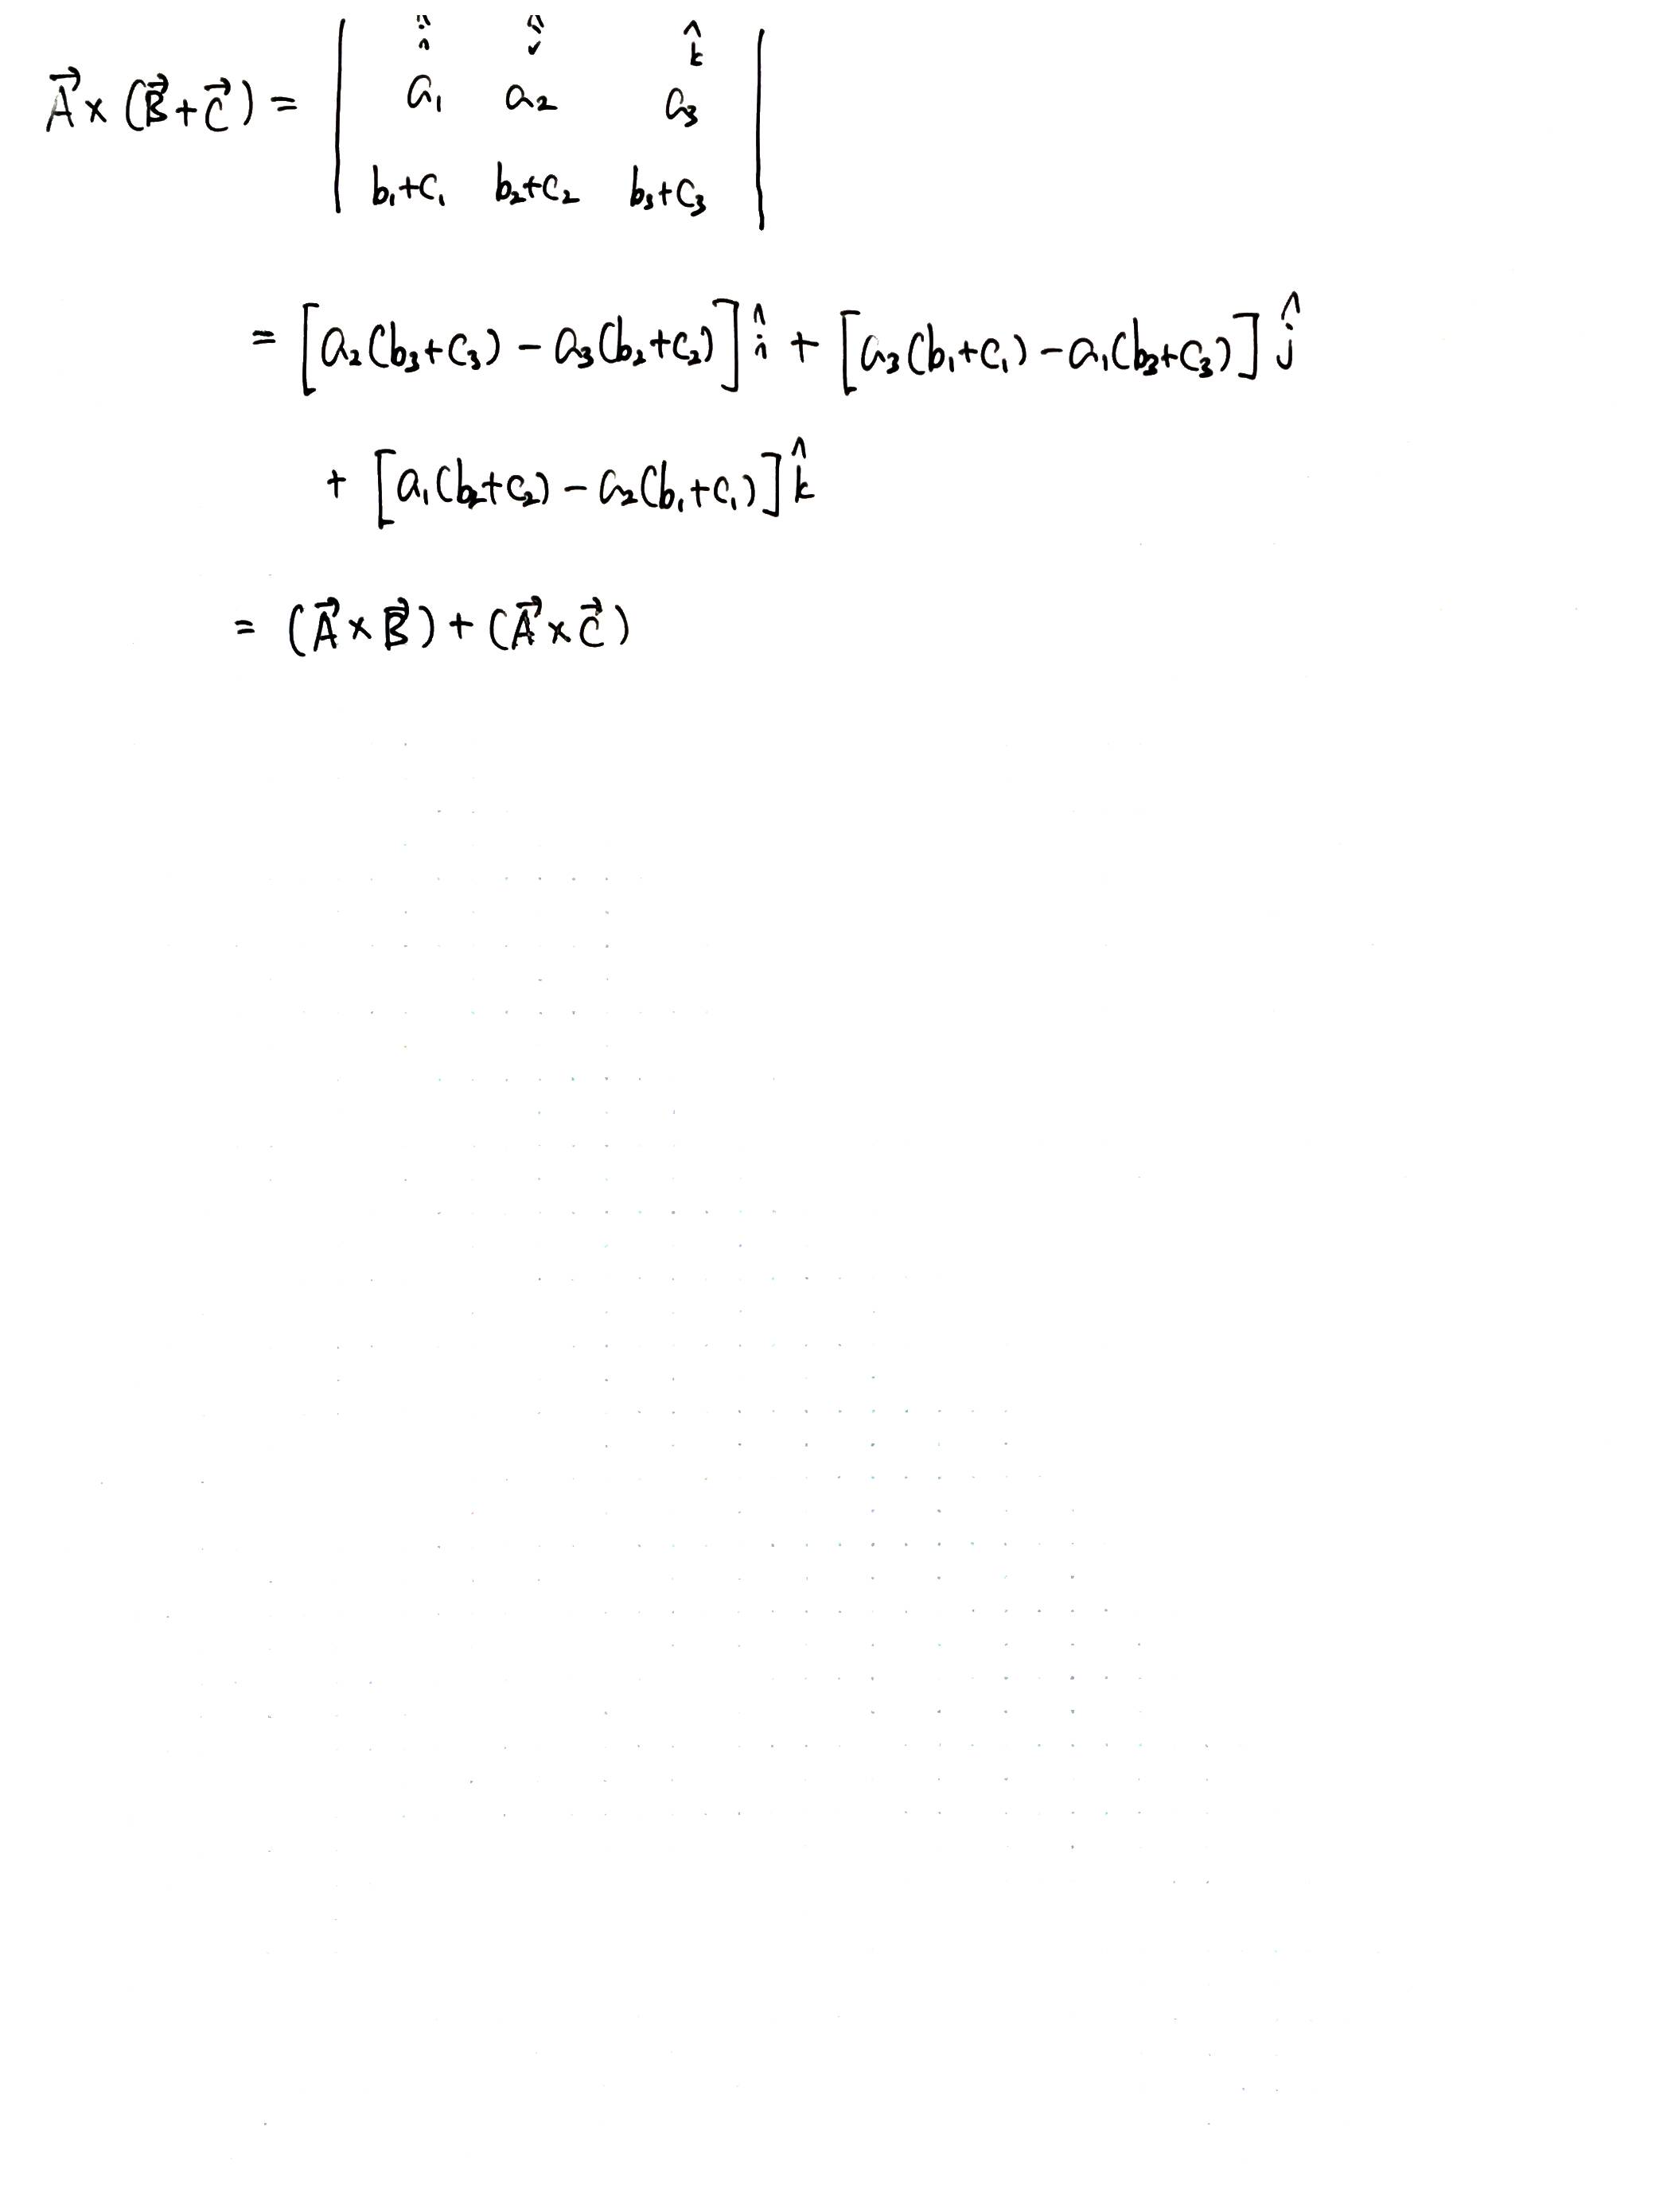 î ĵ k̂
A⃗ × (B⃗ + C⃗) = | a₁ a₂ a₃ |
b₁+c₁ b₂+c₂ b₃+c₃
= [a₂(b₃+c₃) − a₃(b₂+c₂)] î + [a₃(b₁+c₁) − a₁(b₃+c₃)] ĵ
+ [a₁(b₂+c₂) − a₂(b₁+c₁)] k̂
= (A⃗ × B⃗) + (A⃗ × C⃗)